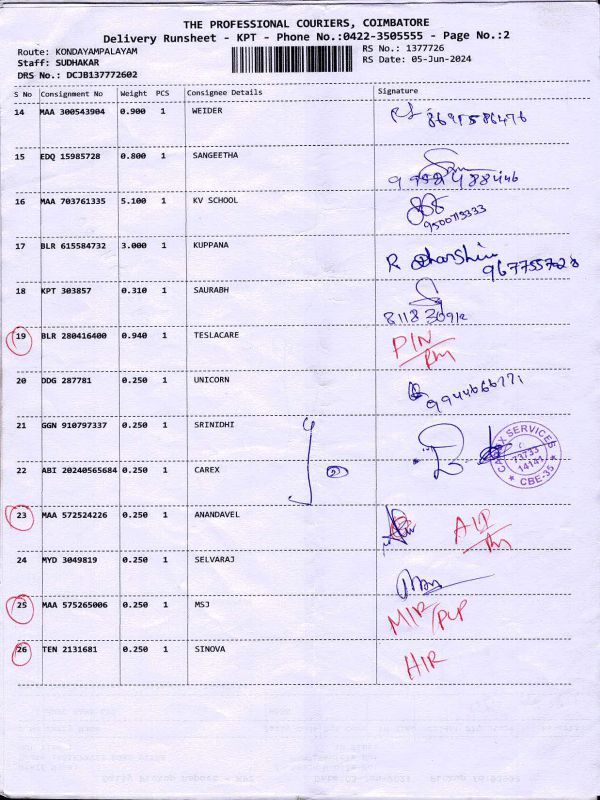 THE PROFESSIONAL COURIERS, COIMBATORE
Delivery Runsheet - KPT - Phone No.:0422-3505555 - Page No.:2
Route: KONDAYAMPALAYAM
Staff: SUDHAKAR
DRS No.: DCJB137772602
RS No.: 1377726
RS Date: 05-Jun-2024
S No Consignment No Weight PCS Consignee Details Signature
14 MAA 300543904 0.900 1 WEIDER
15 EDQ 15985728 0.800 1 SANGEETHA
16 MAA 703761335 5.100 1 KV SCHOOL
9500715333
17 BLR 615584732 3.000 1 KUPPANA
9677557028
18 KPT 303857 0.310 1 SAURABH
19 BLR 280416400 0.940 1 TESLACARE PIN
20 DDG 287781 0.250 1 UNICORN
9944666771
21 GGN 910797337 0.250 1 SRINIDHI
22 ABI 20240565684 0.250 1 CAREX
CAREX SERVICES
73733
14141
CBE-35
23 MAA 572524226 0.250 1 ANANDAVEL
24 MYD 3049819 0.250 1 SELVARAJ
25 MAA 575265006 0.250 1 MSJ
26 TEN 2131681 0.250 1 SINOVA